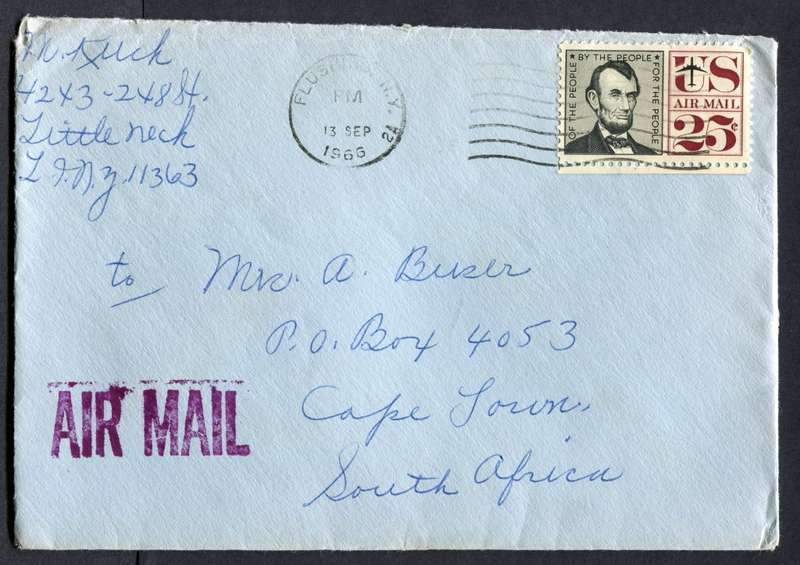 M. Kuck
4243-248 St.
Little Neck
L I. N. Y. 11363
FLUSHING N.Y. 2A
PM
13 SEP
1966
OF THE PEOPLE ★ BY THE PEOPLE ★ FOR THE PEOPLE
US
AIR MAIL
25¢
to Mrs. A. Buser
P.O. Box 4053
Cape Town,
South Africa
AIR MAIL